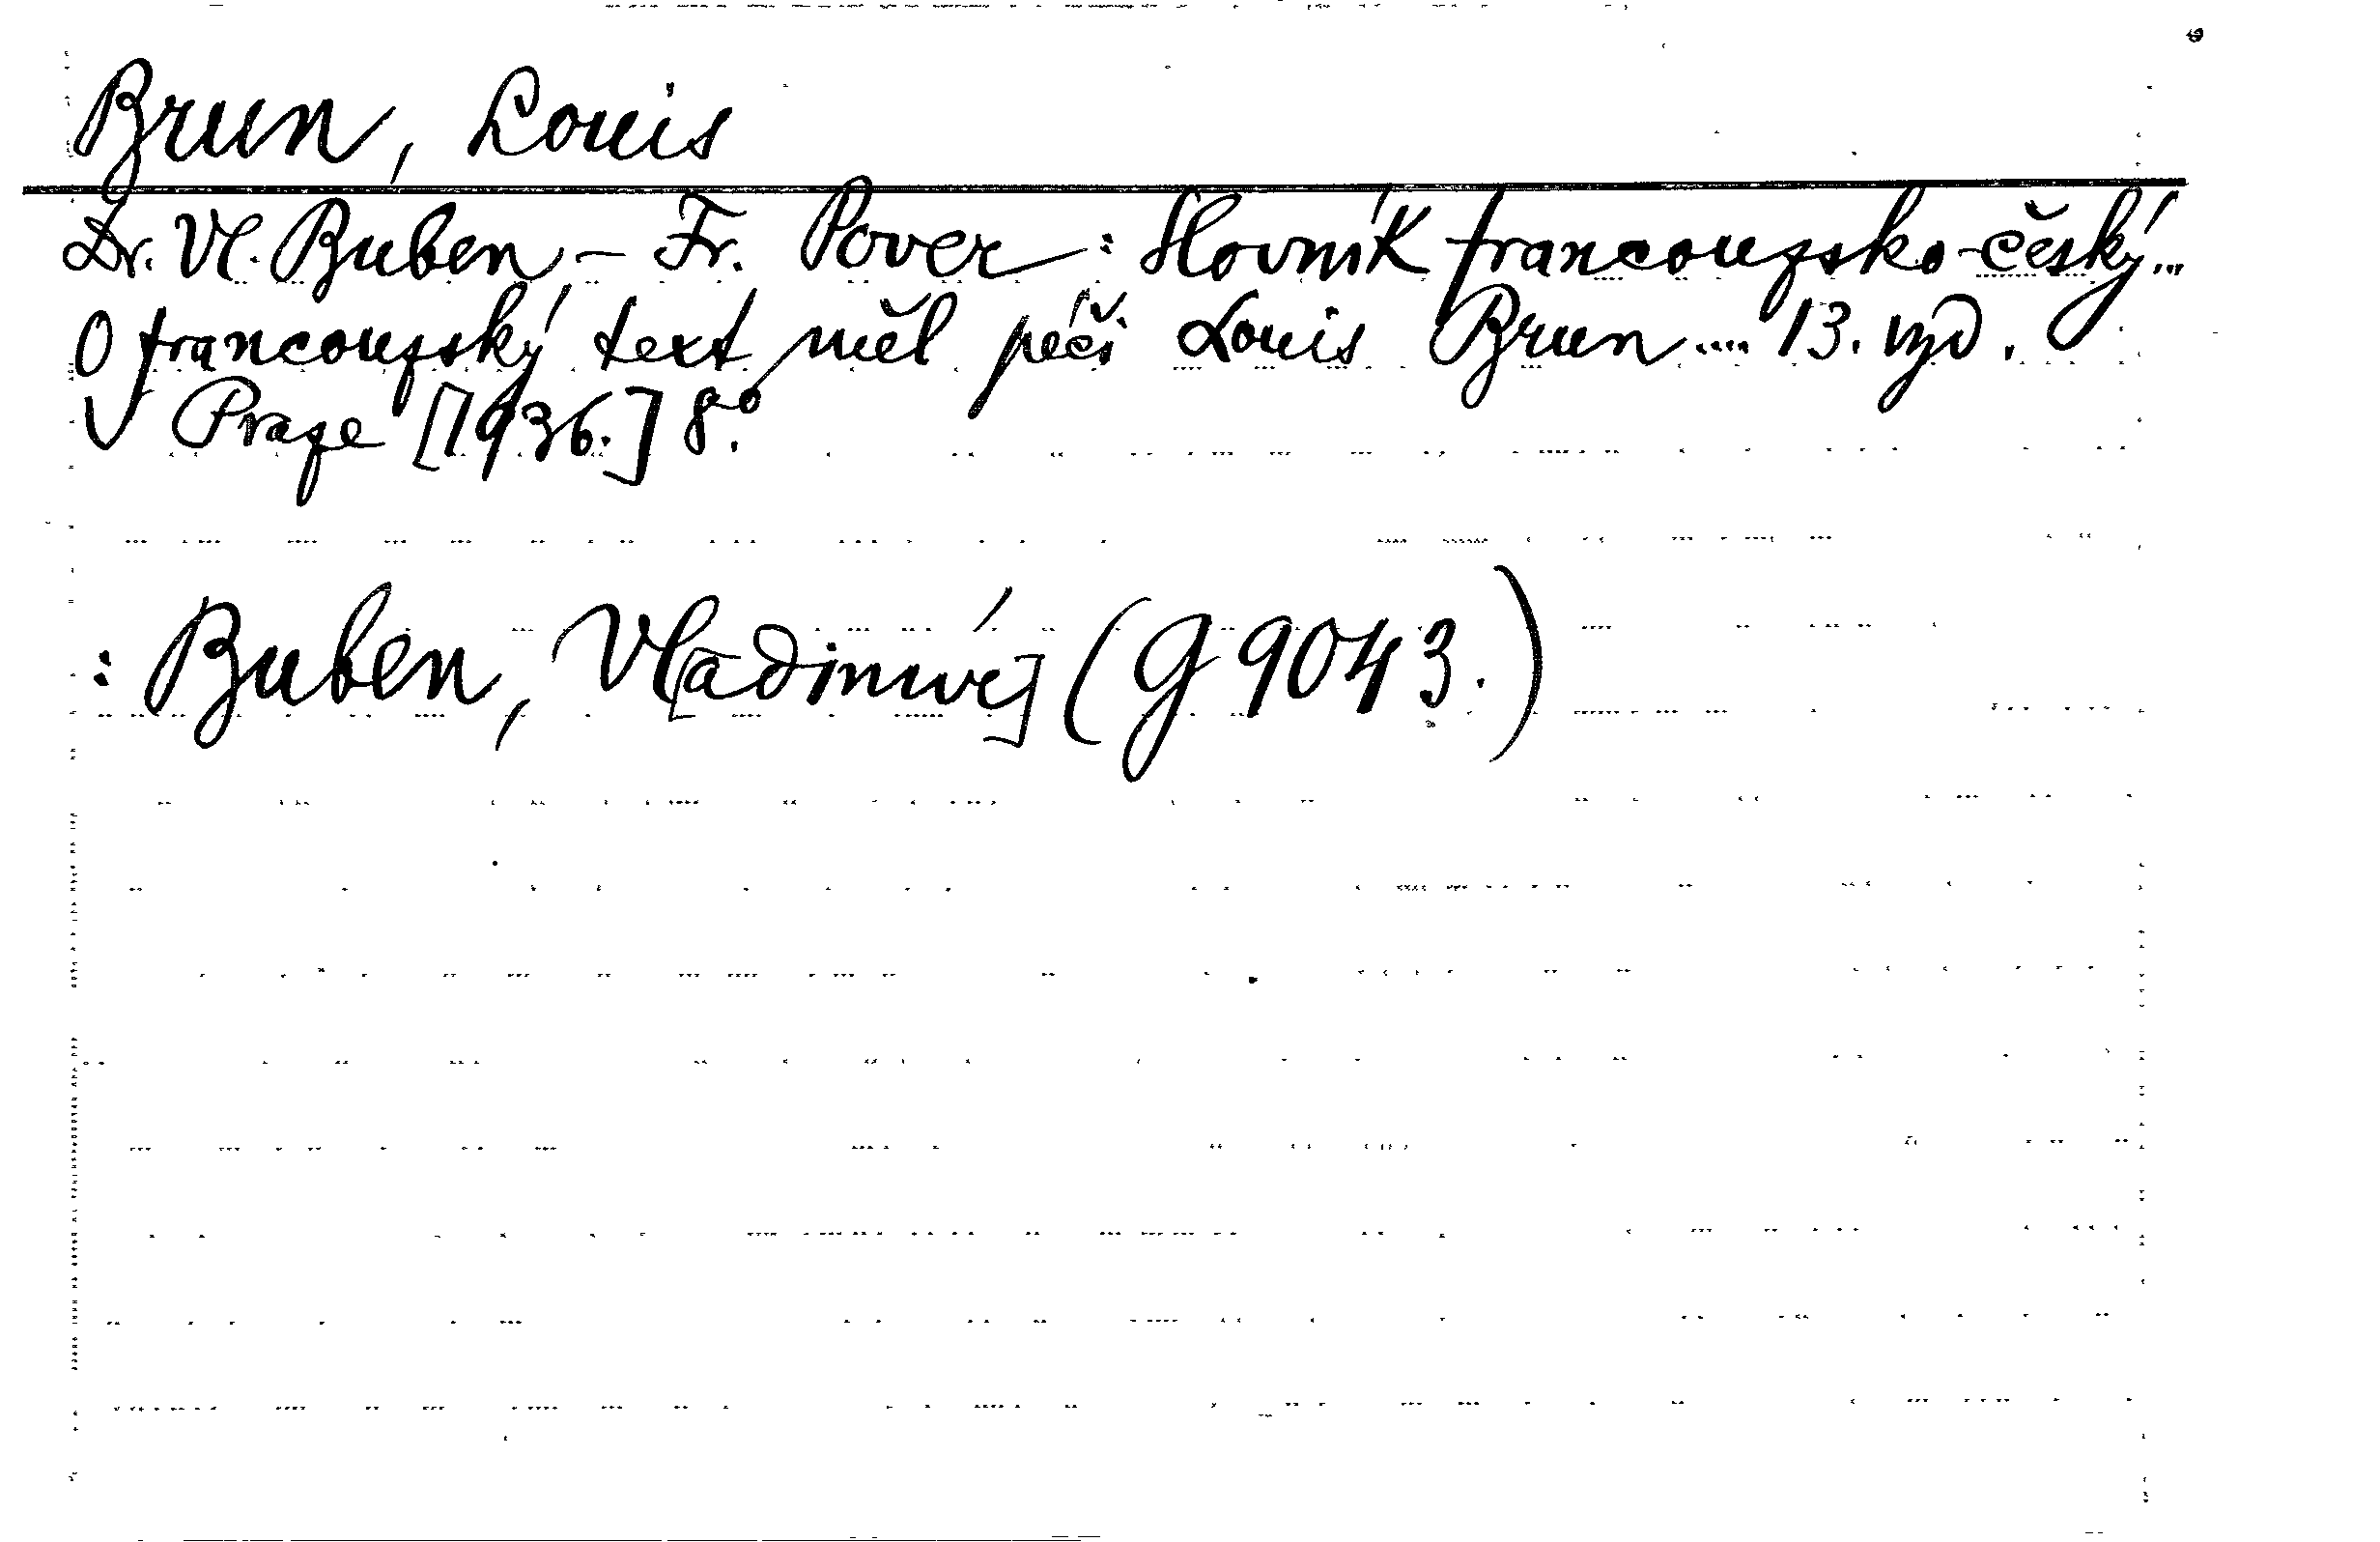 Brun, Louis
Dr. Vl. Buben - Fr. Pover: Slovník francouzsko-český...
O francouzský text měl péči Louis Brun.... 13. vyd.
V Praze [1936.] 8°.
: Buben, Vl[adimír] (G 9043.)